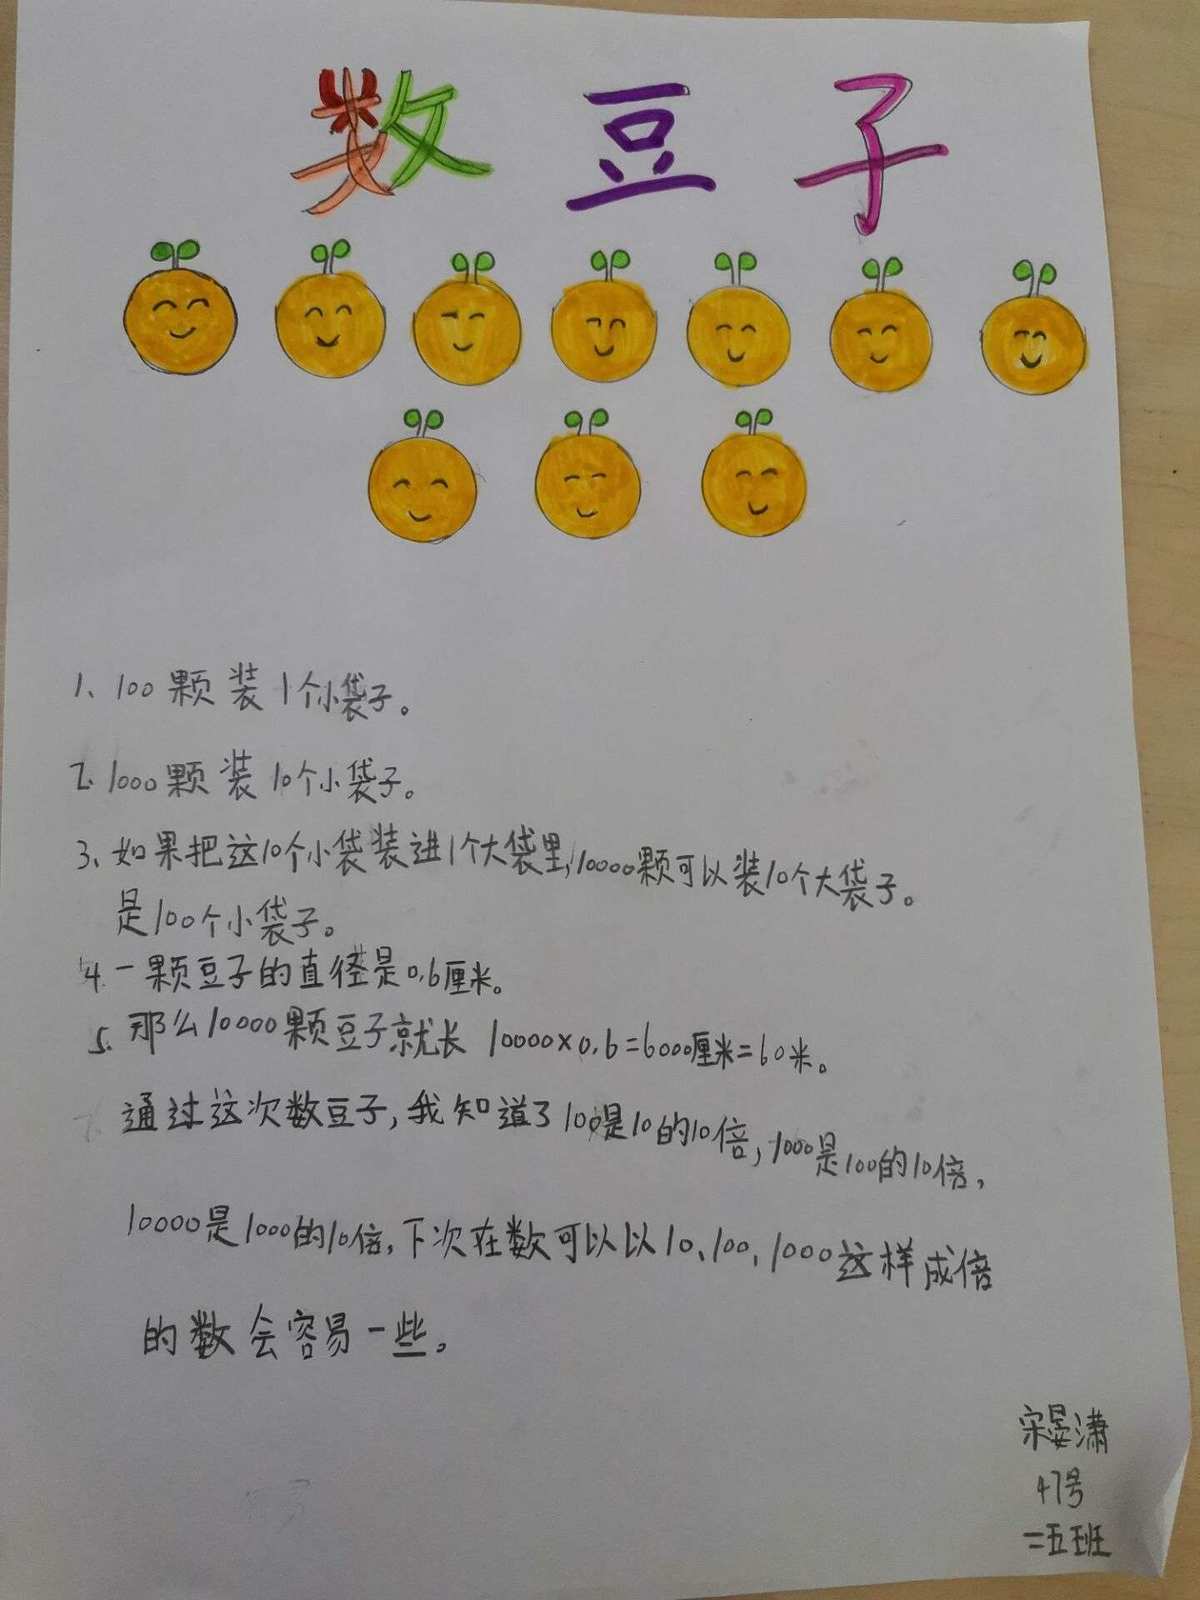 数豆子
1、100颗装1个小袋子。
2、1000颗装10个小袋子。
3、如果把这10个小袋装进1个大袋里,10000颗可以装10个大袋子。
是100个小袋子。
4、一颗豆子的直径是0.6厘米。
5、那么10000颗豆子就长 10000×0.6=6000厘米=60米。
通过这次数豆子,我知道了100是10的10倍,1000是100的10倍,
10000是1000的10倍,下次在数可以以10、100、1000这样成倍
的数会容易一些。
宋晏潇
47号
二五班